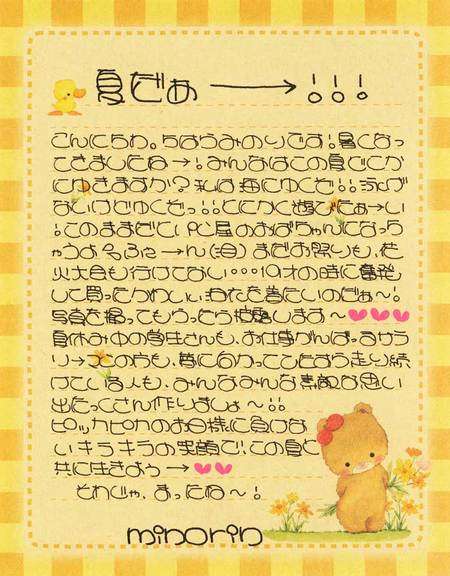 夏だぁ ――→ !!!
こんにちわ。ちはらみのりです!暑くなっ
てきましたね→!みんなはこの夏どこか
にゆきますか?私は海にゆくぞ!!泳げ
ないけどゆくぞっ!!とにかく遊びたぁ→い
!このままだとPC屋のおばちゃんになっち
ゃうよぉふぇ→ん(泣)まだお祭りも、花
火大会も行けてない…19才の時に奮発
して買ったかわいい を着たいのだぁ〜!
写真を撮ってもらったら披露します〜♥♥♥
夏休み中の学生さんも、お仕事がんばるサラ
リ→ の方も、夢に向かってひたすら走り続
けている人も、みんなみんな素敵な思い
出たっくさん作りましょ〜!!
ピッカピカのお日様に負けな
いキラキラの笑顔で、この夏と
共に生きよう→♥♥
それじゃ、まったね〜!
minorin